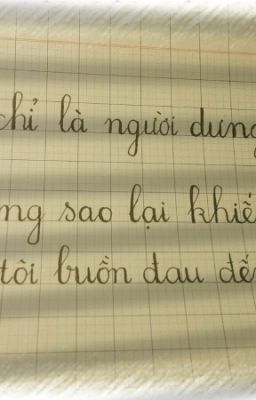 chỉ là người dưng
ng sao lại khiế
tôi buồn đau đế